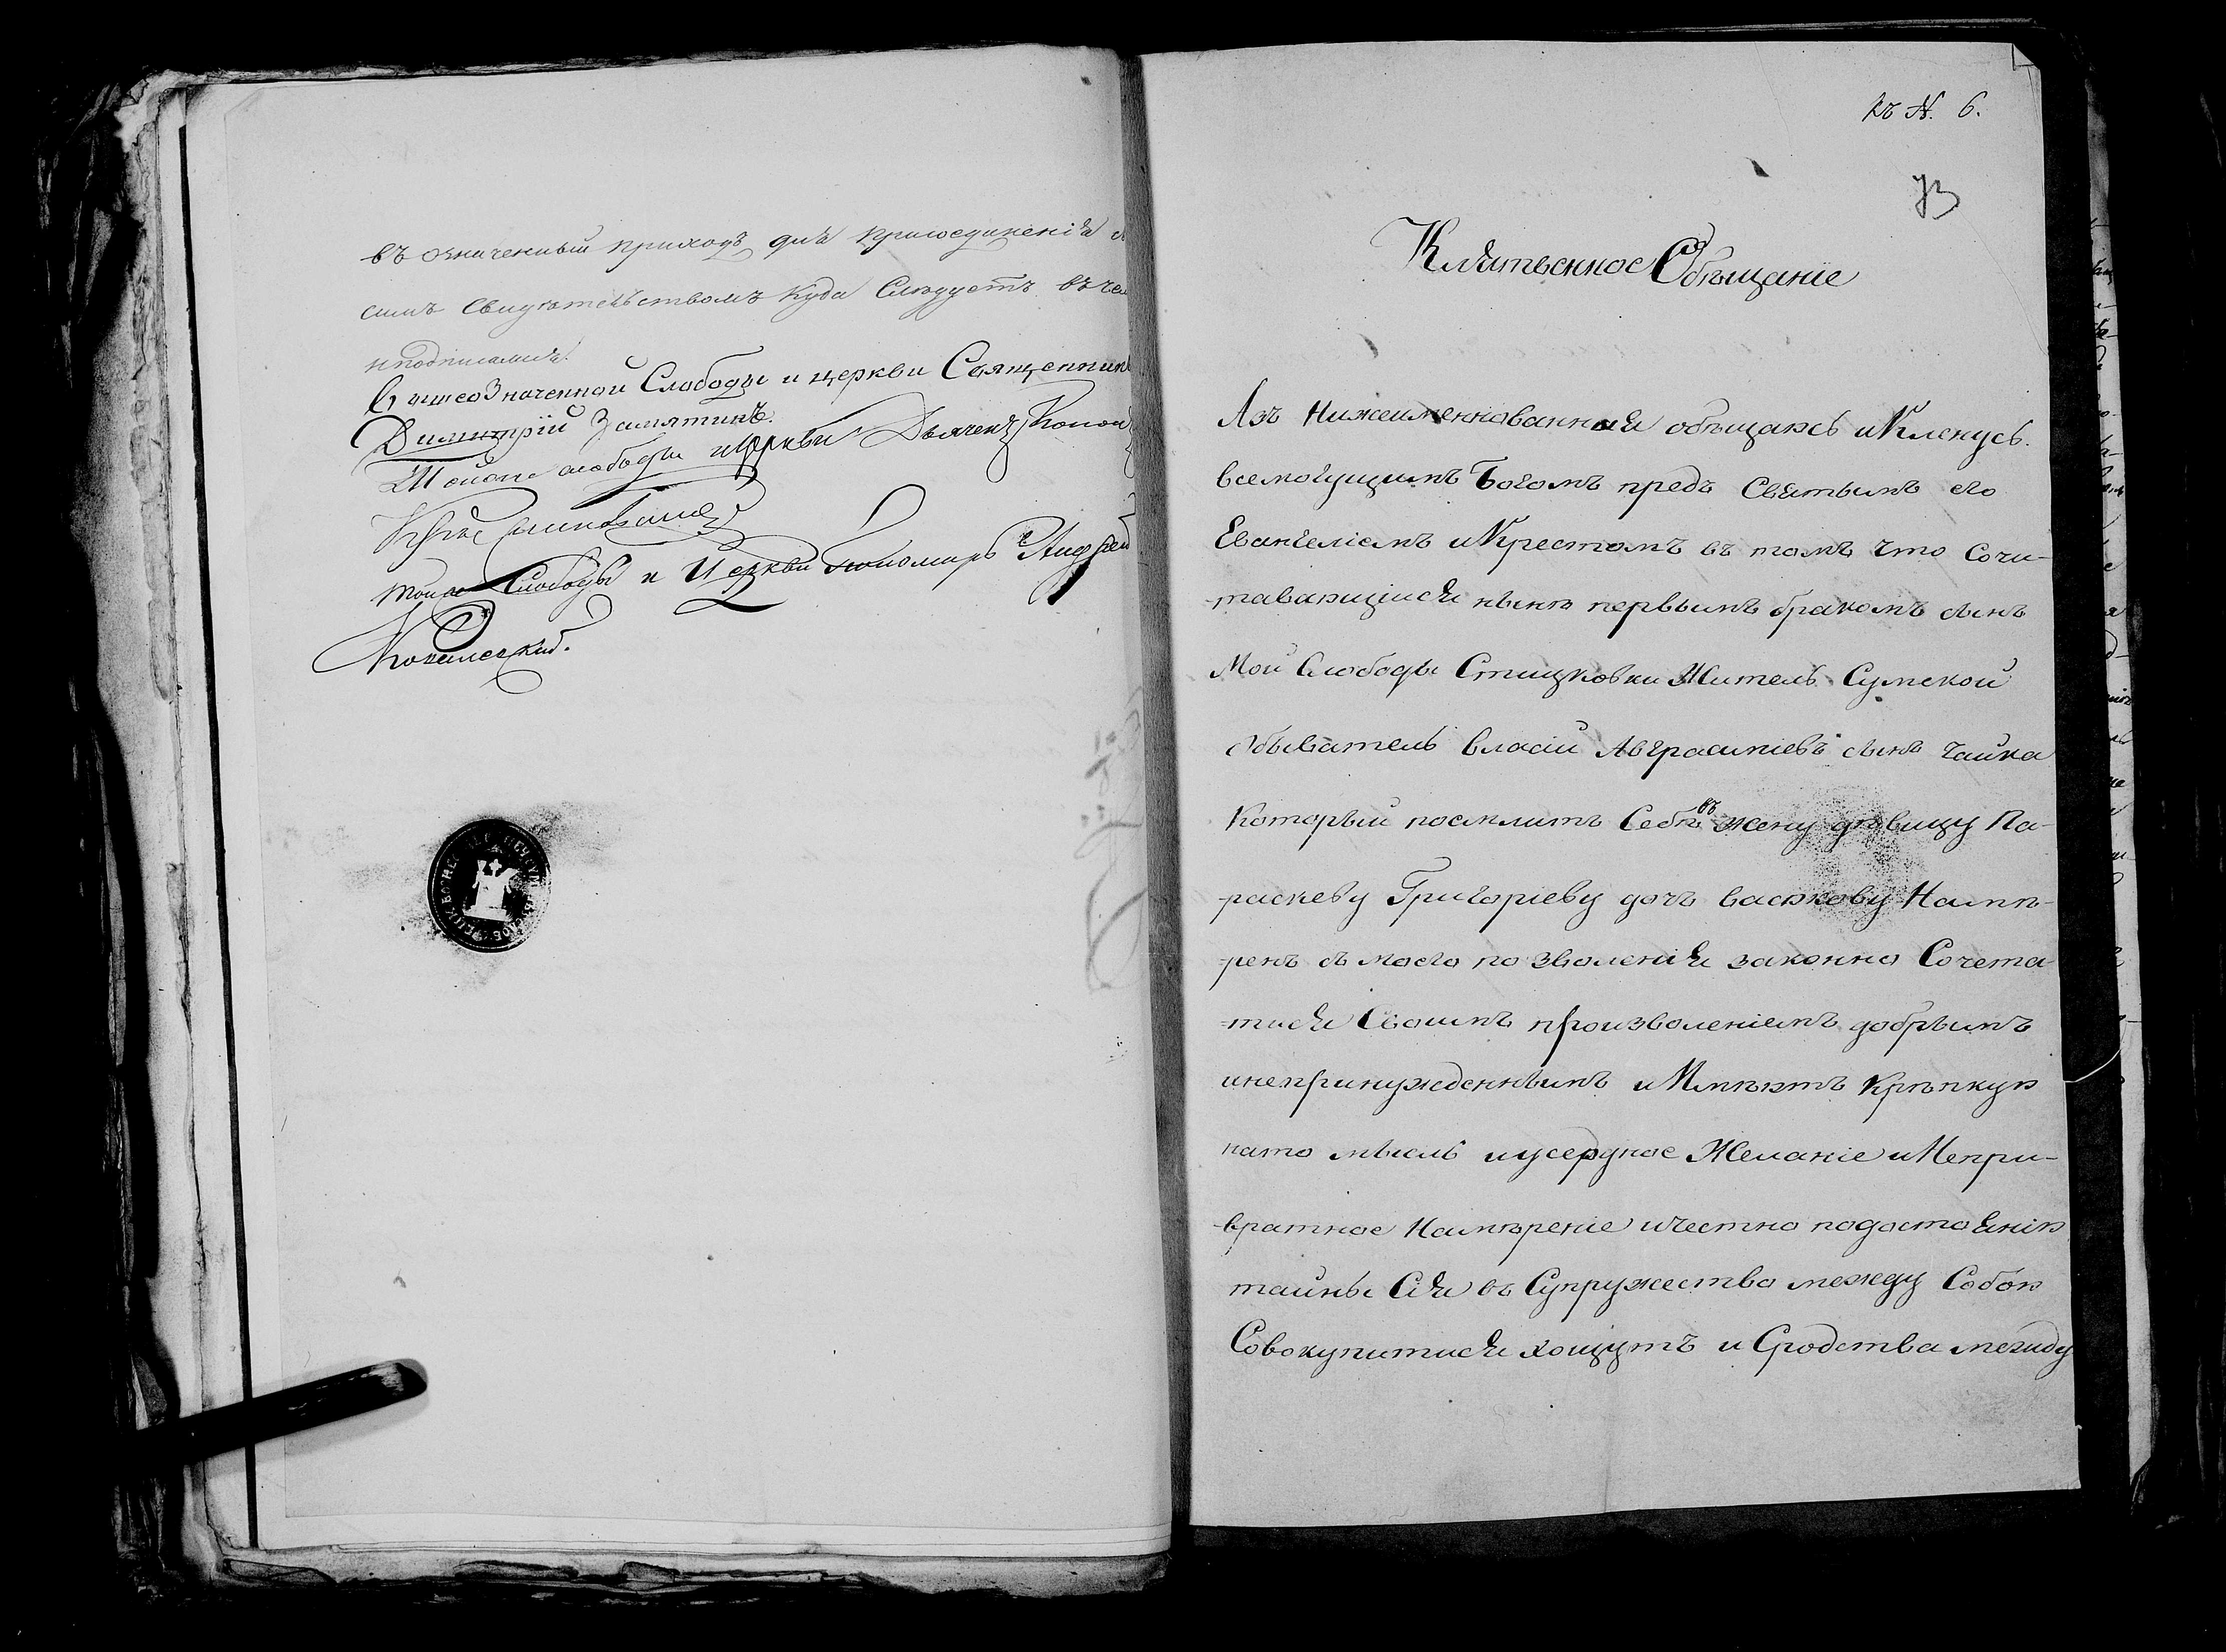 въ означенный приходъ для присоединенія
симъ свидѣтельствомъ куда Слѣдуетъ въ чемъ
и подписались
Вышеозначенной Слободы и церкви Священник
Димитрій Замятинъ.
Тойже слободы и церкви Дьячекъ
тойже Слободы и Церкви Пономарь Андрей
Ковалевский.
къ N. 6.
73
Клятвенное Обѣщаніе
Азъ Нижеименнованный обѣщаюсь и Кленусь.
всемогущимъ Богомъ предъ Святымъ его
Евангеліемъ и Крестомъ въ томъ что Сочи-
тавающійся нынѣ первымъ бракомъ сынъ
Мой Слободы Стицковки Житель Сумской
Обыватель Власій Авграсиміевъ сынъ Чайка
Который поемлитъ Себѣ въ жену дѣвицу Па-
раскеву Григоріеву дочь Васюкову Намѣ-
ренъ съ моего позволенія законно Сочета
тися Своимъ произволеніемъ добрымъ
и непринужденнымъ и Имѣютъ Крѣпкую
на то мысль и усердное Желаніе и Непри-
вратное Намѣреніе и честно по достоянію
тайны Сія въ Супружество между Собою
Совокупитися хощутъ и Сродства межиду